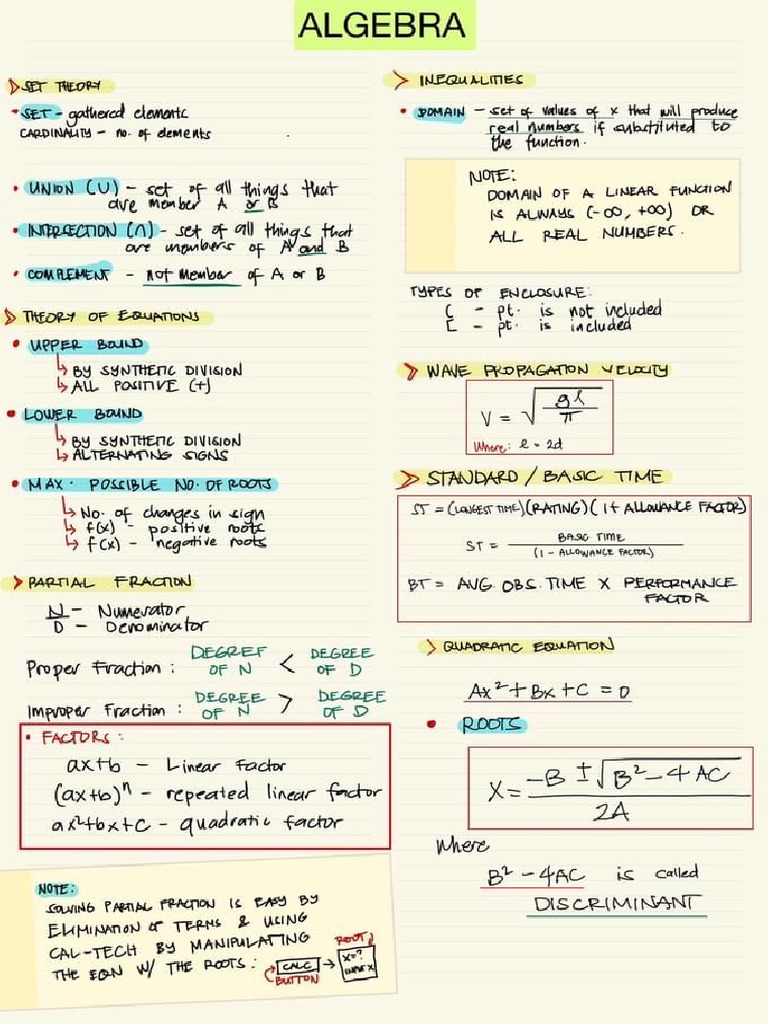 ALGEBRA
SET THEORY
• SET - gathered elements
CARDINALITY - no. of elements
• UNION (∪) - set of all things that
are member A or B
• INTERSECTION (∩) - set of all things that
are members of A and B
• COMPLEMENT - not member of A or B
THEORY OF EQUATIONS
• UPPER BOUND
↳ BY SYNTHETIC DIVISION
↳ ALL POSITIVE (+)
• LOWER BOUND
↳ BY SYNTHETIC DIVISION
↳ ALTERNATING SIGNS
• MAX. POSSIBLE NO. OF ROOTS
↳ No. of changes in sign
↳ f(x) - positive roots
↳ f(x) - negative roots
PARTIAL FRACTION
N - Numerator
D - Denominator
Proper Fraction : DEGREE OF N < DEGREE OF D
Improper Fraction : DEGREE OF N > DEGREE OF D
• FACTORS :
ax+b - Linear Factor
(ax+b)ⁿ - repeated linear factor
ax²+bx+c - quadratic factor
NOTE:
SOLVING PARTIAL FRACTION IS EASY BY
ELIMINATION OF TERMS & USING
CAL-TECH BY MANIPULATING
THE EQN W/ THE ROOTS :
CALC
BUTTON
→
ROOT
X=?
INPUT X
INEQUALITIES
• DOMAIN - set of values of x that will produce
real numbers if substituted to
the function.
NOTE:
DOMAIN OF A LINEAR FUNCTION
IS ALWAYS (-∞, +∞) OR
ALL REAL NUMBERS.
TYPES OF ENCLOSURE:
( - pt. is not included
[ - pt. is included
WAVE PROPAGATION VELOCITY
V = √(gℓ/π)
Where: ℓ = 2d
STANDARD / BASIC TIME
ST = (LONGEST TIME)(RATING)(1+ ALLOWANCE FACTOR)
ST = BASIC TIME / (1 - ALLOWANCE FACTOR)
BT = AVG. OBS. TIME X PERFORMANCE
FACTOR
QUADRATIC EQUATION
Ax²+Bx+C = 0
• ROOTS
X = (-B ± √(B²-4AC)) / 2A
Where
B² - 4AC is called
DISCRIMINANT